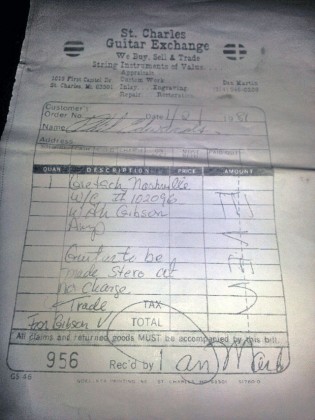 St. Charles
Guitar Exchange
We Buy, Sell & Trade
String Instruments of Value
Appraisals
1023 First Capitol Dr. Custom Work Don Martin
St. Charles, Mo. 63301 Inlay Engraving
Repair
Customer's
Order No. Date 19
Name
Address
QUAN DESCRIPTION PRICE AMOUNT
1 Gretsch Nashville
w/c # 102096
with Gibson
Amp
Guitar to be
made Stero at
no charge
Trade TAX
For Gibson TOTAL
All claims and returned goods MUST be accompanied by this bill.
956 Rec'd by